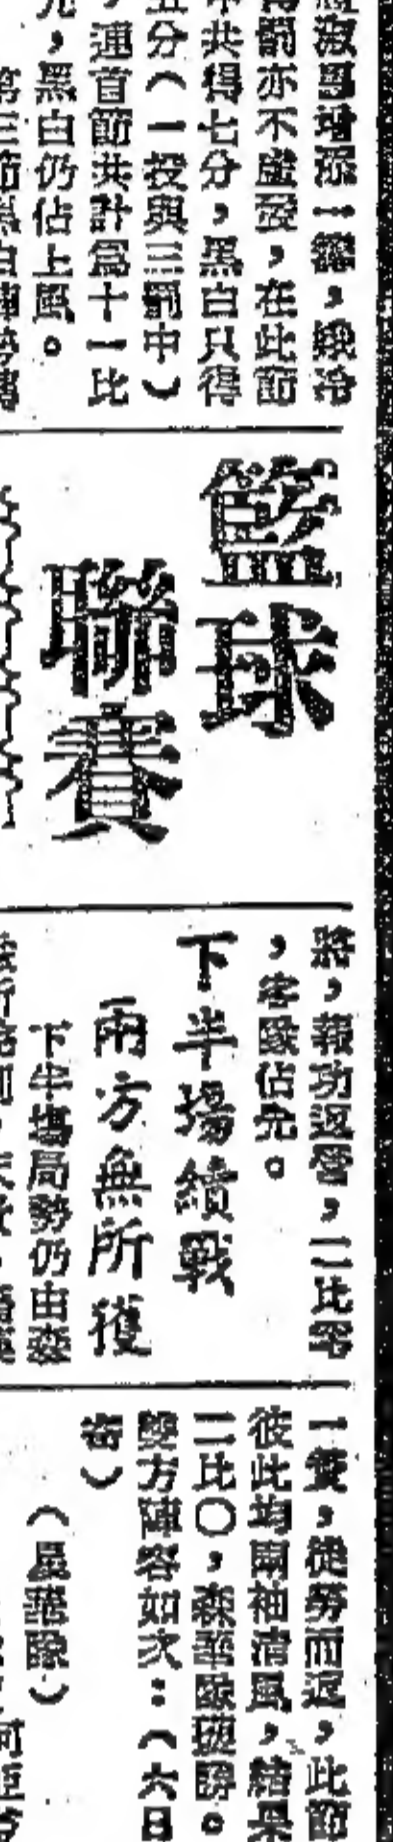 增添一籌,
罰亦不虛發,在此節
共得七分,黑白只得
五分(一投與三罰中)
,連首節共計爲十一比
,黑白仍佔上風。
籃球
聯賽
將,報功返營,二比零
,客隊佔先。
下半場續戰
兩方無所獲
下半場局勢仍由森
一隻,徒勞而返,此節
彼此均兩袖清風,結果
二比〇,森華隊班師。
雙方陣容如次:(六日
(星華隊)